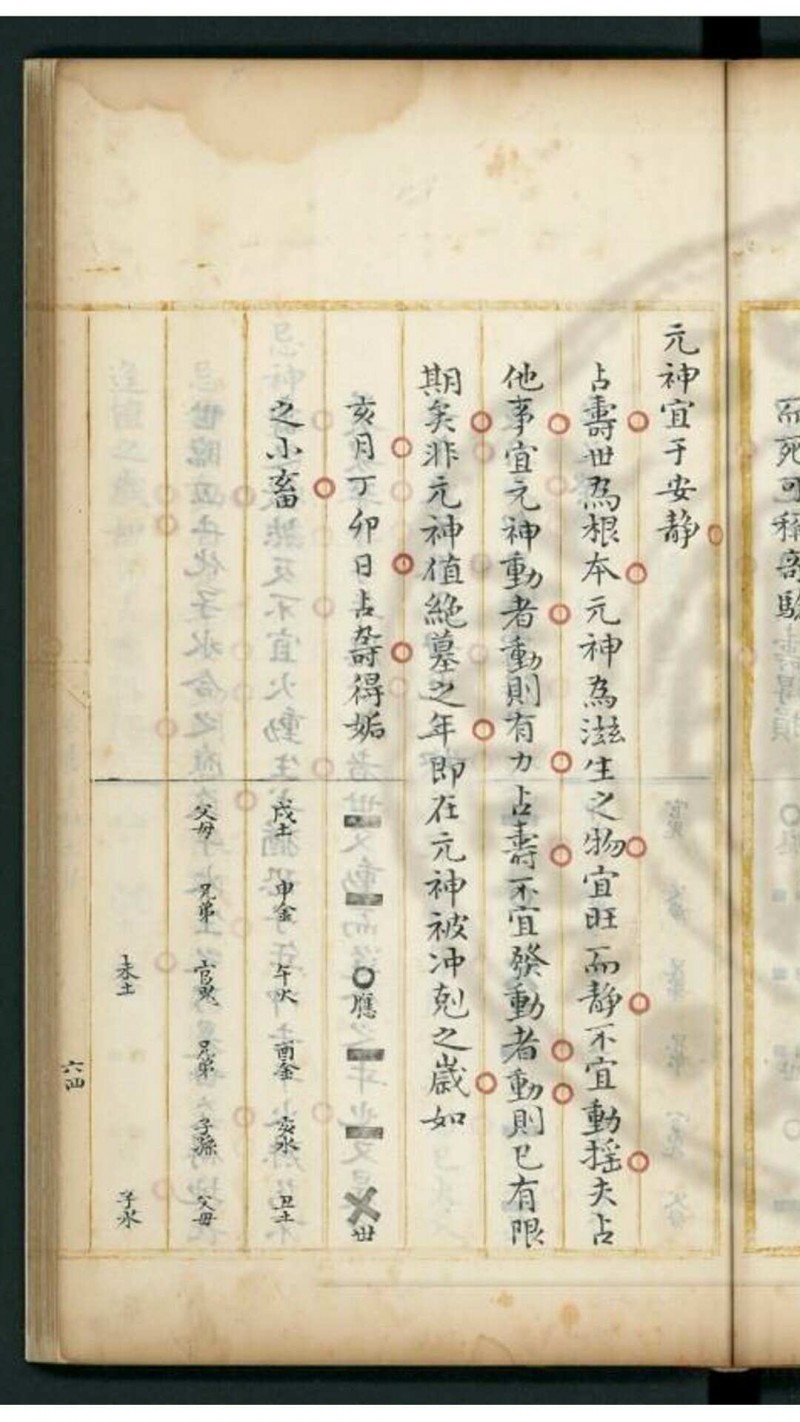 而死可稱
元神宜于安静
占壽世為根本元神為滋生之物宜旺而静不宜動摇夫占
他事宜元神動者動則有力占壽不宜發動者動則已有限
期矣非元神值絶墓之年即在元神被冲剋之歲如
亥月丁卯日占壽得姤 應 世
之小畜 戌土 申金 午火 酉金 亥水 丑土
父母 兄弟 官鬼 兄弟 子孫 父母
未土 子水
六四